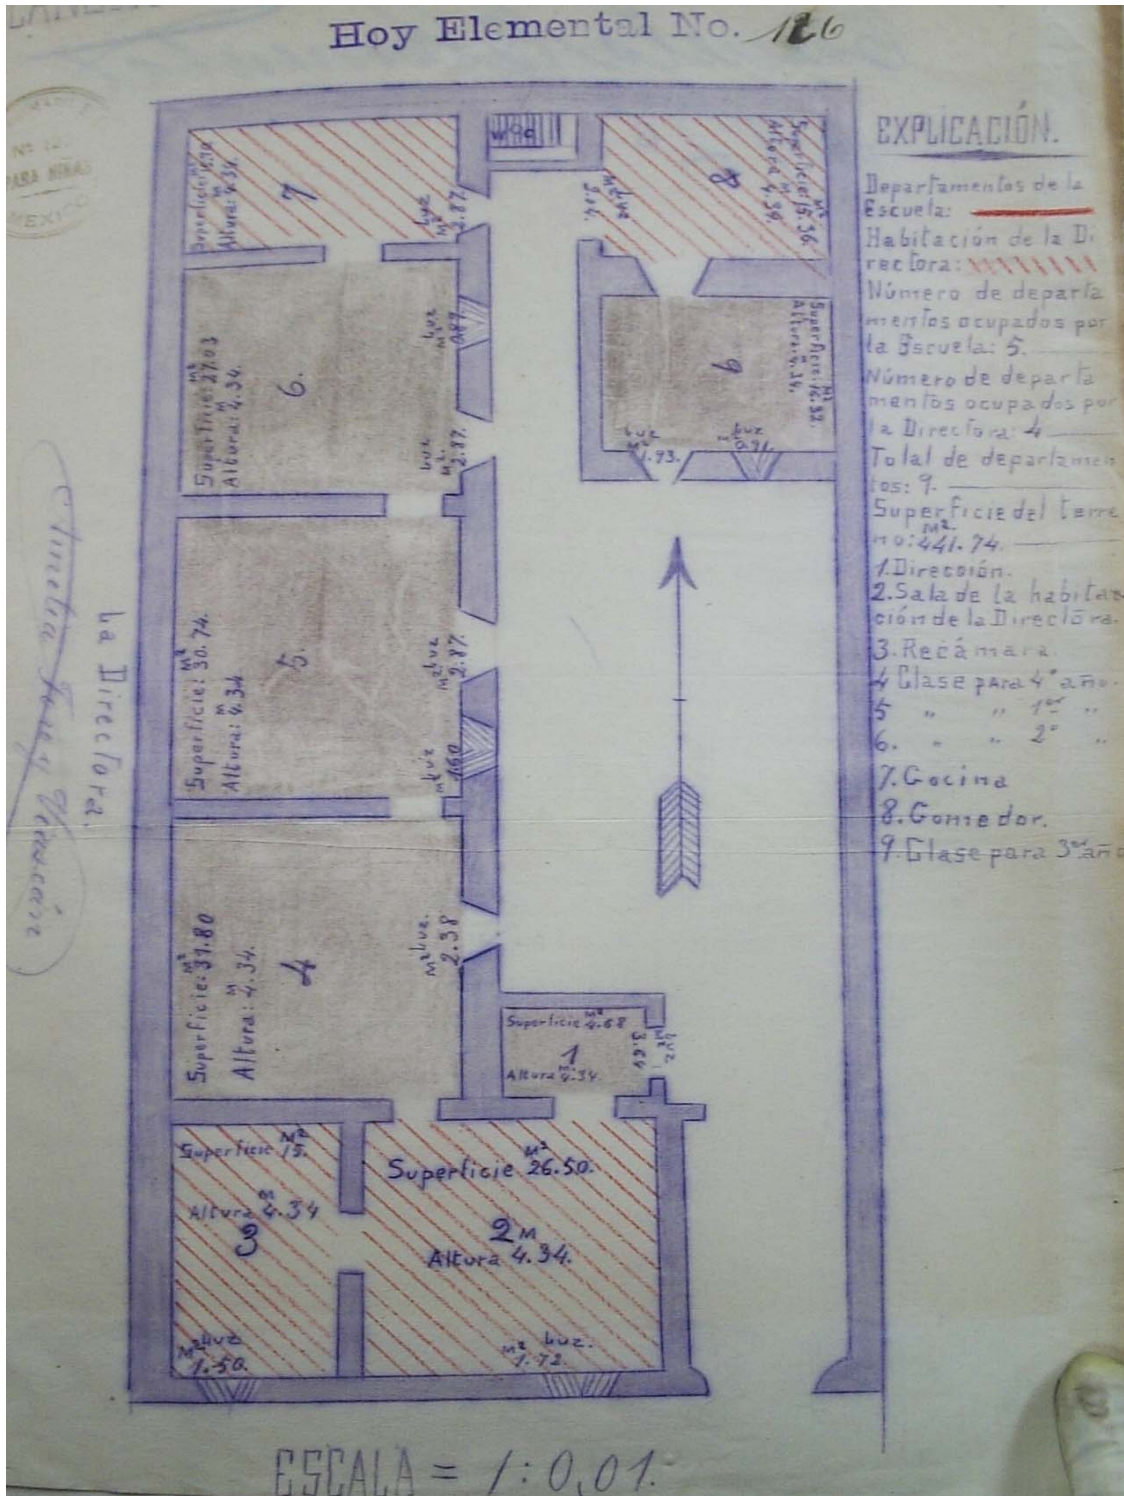 Hoy Elemental No. 126
Nº 12.
PARA NIÑAS
MEXICO
EXPLICACIÓN.
Departamentos de la
Escuela:
Habitación de la Di
rectora:
Número de departa
mentos ocupados por
la Escuela: 5.
Número de departa
mentos ocupados por
la Directora: 4
Total de departamen
tos: 9.
Superficie del terre
no: 441.74. M²
1. Dirección.
2. Sala de la habita
ción de la Directora.
3. Recámara.
4 Clase para 4º año.
5 „ „ 1er „
6. „ „ 2º „
7. Cocina
8. Comedor.
9. Clase para 3er año
7
Altura: 4.34. M
Luz
M² 2.87.
8
Superficie: 15.36. M²
Altura 4.34. M
Luz
M² 2.04.
6.
Superficie: 27.03 M²
Altura: 4.34. M
Luz
M² 0.87.
Luz
M² 2.87.
9
Superficie: 16.32. M²
Altura: 4.34. M
1.93.
Luz
0.91.
5.
Superficie: 30.74. M²
Altura: 4.34 M
Luz
M² 2.87.
Luz
M² 1.60
4
Superficie: 31.80 M²
Altura: 4.34. M
Luz.
M² 2.38
Superficie 4.68 M²
1
Altura 4.34. M
Luz
M² 3.64
Superficie 15. M²
Altura 4.34 M
3
Luz
M² 1.50.
Superficie 26.50. M²
2
Altura 4.34. M
Luz.
M² 1.72.
La Directora.
ESCALA = 1:0,01.